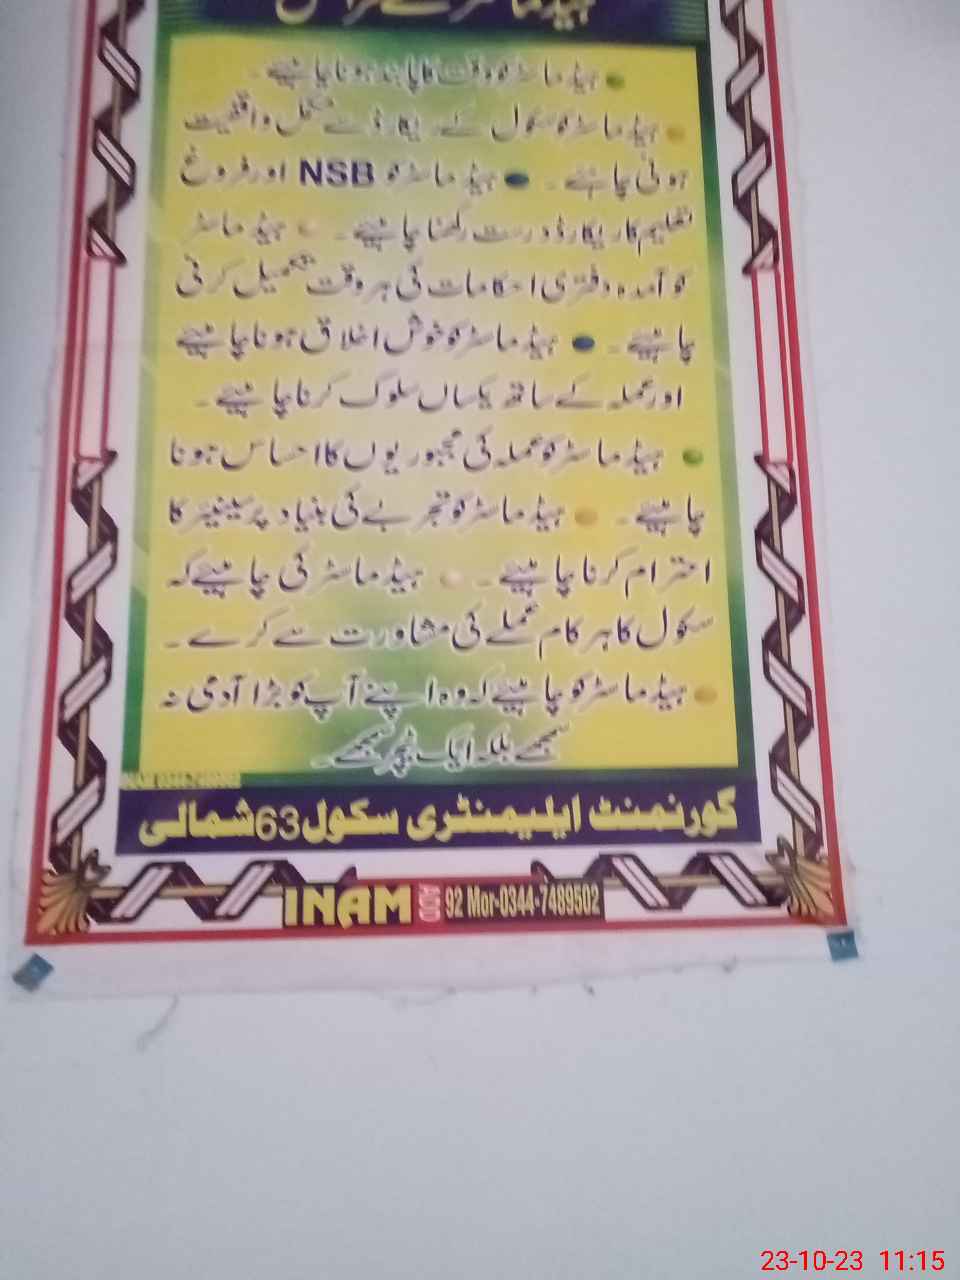 ہیڈ ماسٹر کے فرائض
ہیڈ ماسٹر کو وقت کا پابند ہونا چاہیئے۔
ہیڈ ماسٹر کو سکول کے ریکارڈ سے مکمل واقفیت
ہونی چاہیئے۔ ہیڈ ماسٹر کو NSB اور فروغ
تعلیم کا ریکارڈ درست رکھنا چاہیئے۔ ہیڈ ماسٹر
کو آمدہ دفتری احکامات کی ہر وقت تکمیل کرنی
چاہیئے۔ ہیڈ ماسٹر کو خوش اخلاق ہونا چاہیئے
اور عملہ کے ساتھ یکساں سلوک کرنا چاہیئے۔
ہیڈ ماسٹر کو عملہ کی مجبوریوں کا احساس ہونا
چاہیئے۔ ہیڈ ماسٹر کو تجربے کی بنیاد پر سینیئر کا
احترام کرنا چاہیئے۔ ہیڈ ماسٹر کی چاہیئے کہ
سکول کا ہر کام عملے کی مشاورت سے کرے۔
ہیڈ ماسٹر کو چاہیئے کہ وہ اپنے آپ کو بڑا آدمی نہ
سمجھے بلکہ ایک ٹیچر سمجھے۔
گورنمنٹ ایلیمنٹری سکول 63 شمالی
INAM ADD 92 Mor-0344-7489502
23-10-23 11:15